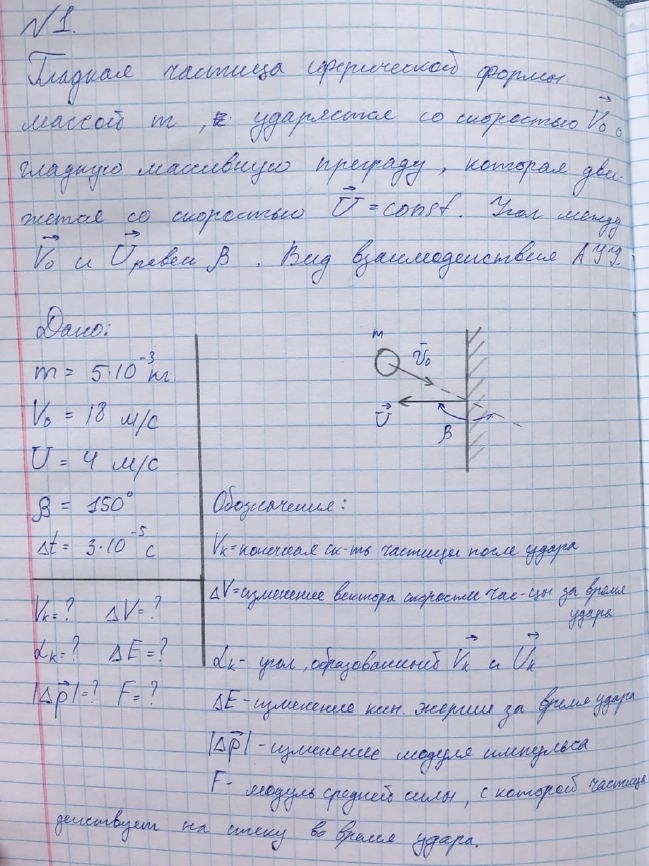 N1.
Гладкая частица сферической формы
массой m, ударяется со скоростью V₀ о
гладкую массивную преграду, которая дви-
жется со скоростью U = const. Угол между
V₀ и U равен β. Вид взаимодействия АУУ.
Дано:
m = 5·10⁻³ кг.
V₀ = 18 м/с
U = 4 м/с
β = 150°
Δt = 3·10⁻⁵ с
Vк = ? ΔV = ?
αк = ? ΔE = ?
|Δp| = ? F = ?
m
V₀
U
β
Обозначения:
Vк = конечная ск-ть частицы после удара
ΔV = изменение вектора скорости час-цы за время
удара
αк - угол, образованный Vк и Uк
ΔE - изменение кин. энергии за время удара
|Δp| - изменение модуля импульса
F - модуль средней силы, с которой частица
действует на стенку во время удара.